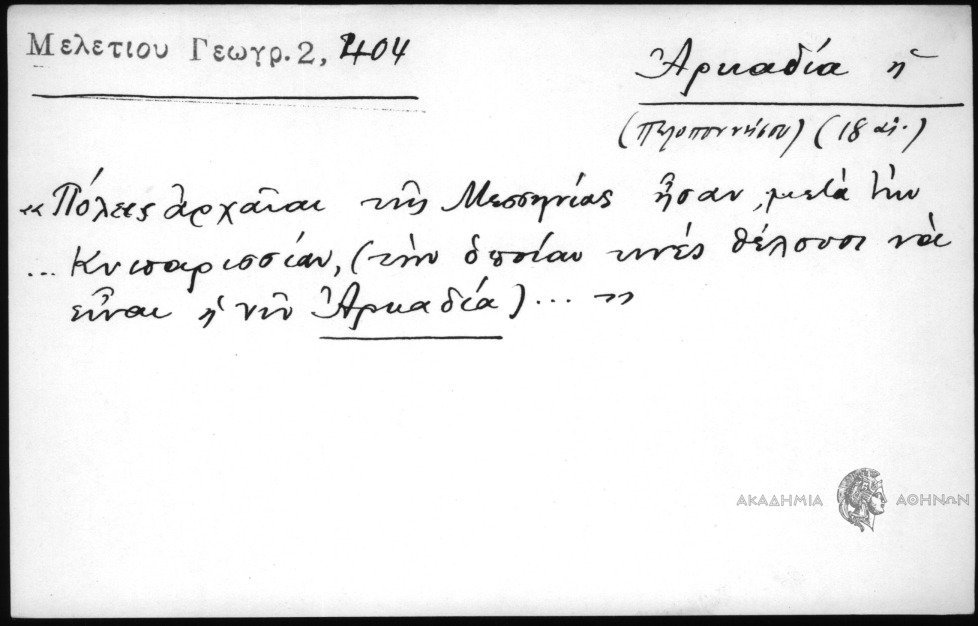 Μελετιου Γεωγρ. 2, 404
Ἀρκαδία ἡ
(Πελοποννήσου) (18 αἰ.)
«Πόλεις ἀρχαῖαι τῆς Μεσσηνίας ἦσαν, μετὰ τὴν
... Κυπαρισσίαν, (τὴν ὁποίαν τινές θέλουσι νὰ
εἶναι ἡ νῦν Ἀρκαδία) ... »
ΑΚΑΔΗΜΙΑ ΑΘΗΝΩΝ